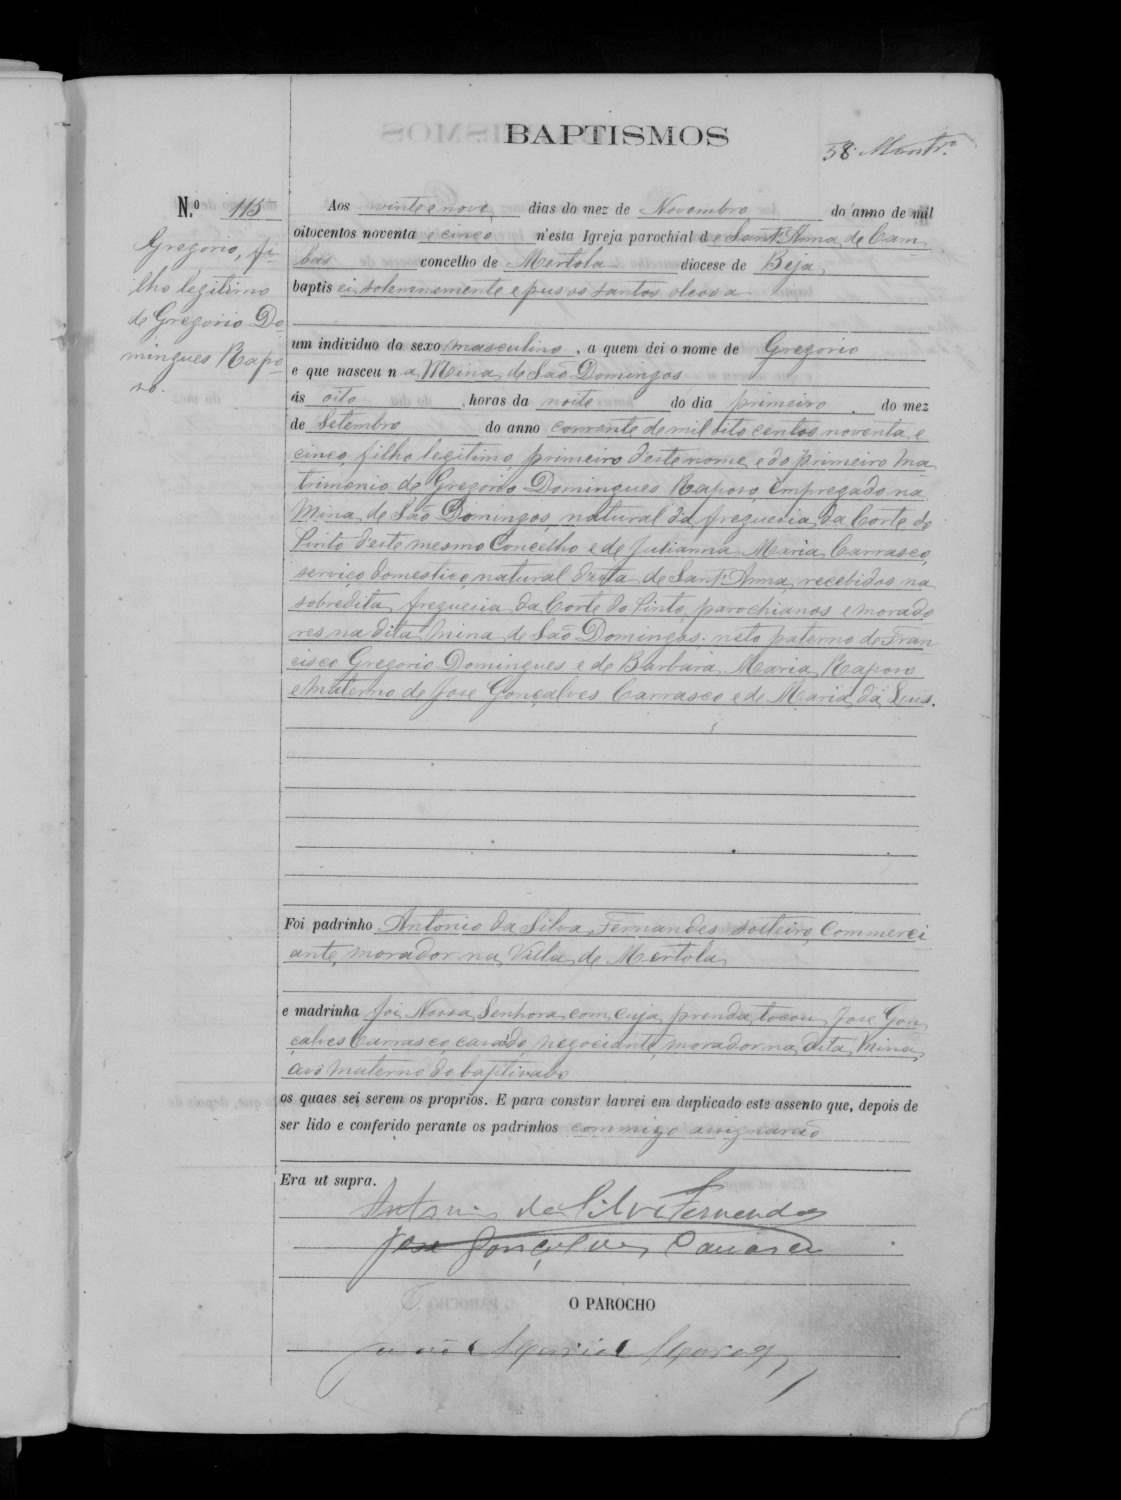 BAPTISMOS
58
N.º 115
Gregorio, fi-
lho legitimo
de Gregorio Do-
mingues Rapo-
so.
Aos vinte e nove dias do mez de Novembro do anno de mil
oitocentos noventa e cinco n'esta Igreja parochial de Sant'Anna de Cam-
bas concelho de Mertola diocese de Beja,
baptisei solemnemente e puz os santos oleos a
um individuo do sexo masculino, a quem dei o nome de Gregorio
e que nasceu na Mina de São Domingos
ás oito horas da noite do dia primeiro do mez
de Setembro do anno corrente de mil oito centos noventa e
cinco, filho legitimo, primeiro deste nome e do primeiro ma-
trimonio de Gregorio Domingues Raposo, empregado na
Mina de São Domingos, natural da freguezia da Corte do
Pinto d'este mesmo Concelho e de Julianna Maria Carrasco,
serviço domestico, natural desta de Sant'Anna, recebidos na
sobredita freguezia da Corte do Pinto, parochianos e morado-
res na dita Mina de São Domingos: neto paterno de Fran-
cisco Gregorio Domingues e de Barbara Maria Raposo
e Materno de Jose Gonçalves Carrasco e de Maria da
Foi padrinho Antonio da Silva Fernandes solteiro, Commerci-
ante, morador na Villa de Mertola
e madrinha foi Nossa Senhora com cuja prenda tocou Jose Gon-
çalves Carrasco, casado, negociante, morador na dita Mina,
avô materno do baptisado
os quaes sei serem os proprios. E para constar lavrei em duplicado este assento que, depois de
ser lido e conferido perante os padrinhos commigo assignarão
Era ut supra.
Antonio da Silva Fernandes
Jose Gonçalves Carrasco
O PAROCHO